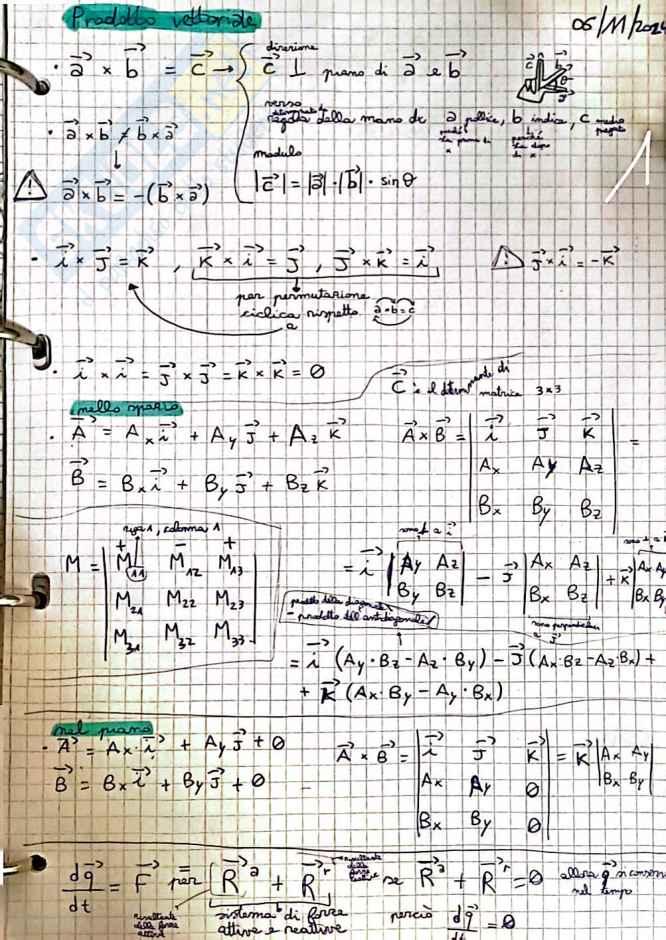 Prodotto vettoriale
05/11/2024
a⃗ × b⃗ = c⃗ → direzione c⃗ ⊥ piano di a⃗ e b⃗
verso
regola della mano dx a pollice, b indice, c medio
• a⃗ × b⃗ ≠ b⃗ × a⃗
modulo
a⃗ × b⃗ = -(b⃗ × a⃗)
|c⃗| = |a⃗| · |b⃗| · sin θ
1
• i⃗ × J⃗ = K⃗ , K⃗ × i⃗ = J⃗ , J⃗ × K⃗ = i⃗
J⃗ × i⃗ = -K⃗
per permutazione
ciclica rispetto a × b = c
a
• i⃗ × i⃗ = J⃗ × J⃗ = K⃗ × K⃗ = 0
C⃗ è il determinante di
matrice 3×3
nello spazio
• A⃗ = Ax i⃗ + Ay J⃗ + Az K⃗
B⃗ = Bx i⃗ + By J⃗ + Bz K⃗
A⃗ × B⃗ = | i⃗ J⃗ K⃗ | =
| Ax Ay Az |
| Bx By Bz |
riga 1, colonna 1
+ − +
M = | M11 M12 M13 |
| M21 M22 M23 |
| M31 M32 M33 |
= i⃗ | Ay Az | - J⃗ | Ax Az | + K⃗ | Ax Ay |
| By Bz | | Bx Bz | | Bx By |
prodotto della diagonale
- prodotto dell'antidiagonale
= i⃗ (Ay · Bz - Az · By) - J⃗ (Ax · Bz - Az · Bx) +
+ K⃗ (Ax · By - Ay · Bx)
nel piano
• A⃗ = Ax · i⃗ + Ay J⃗ + 0
B⃗ = Bx i⃗ + By J⃗ + 0
A⃗ × B⃗ = | i⃗ J⃗ K⃗ | = K⃗ | Ax Ay |
| Ax Ay 0 | | Bx By |
| Bx By 0 |
dq⃗/dt = F⃗ = per R⃗ᵃ + R⃗ʳ se R⃗ᵃ + R⃗ʳ = 0 allora q⃗ si conserva
nel tempo
risultante
delle forze
attive
risultante
delle forze
reattive
sistema di forze
attive e reattive
perciò dq⃗/dt = 0